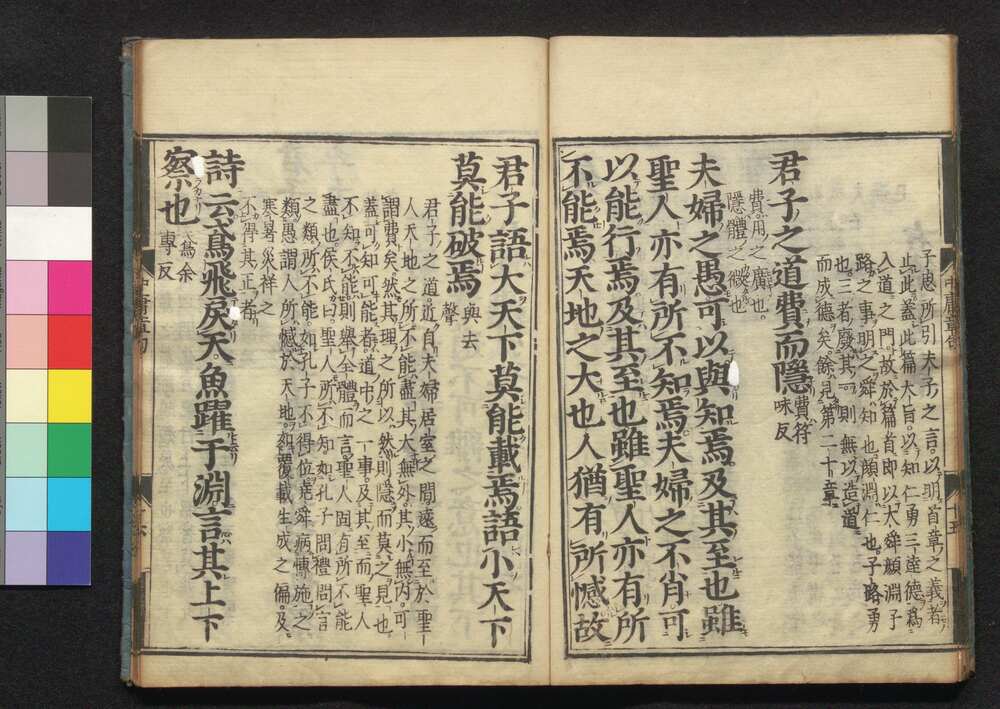 子思所引夫子之言。以明首章之義者
止此。蓋此篇大旨。以知仁勇三達德爲
入道之門。故於篇首。即以大舜顏淵子
路之事明之。舜知也。顏淵仁也。子路勇
也。三者廢其一。則無以造道
而成德矣。餘見第二十章
君子之道費而隱 費符味反
費。用之廣也。
隱。體之微也
夫婦之愚可以與知焉及其至也雖
聖人亦有所不知焉夫婦之不肖可
以能行焉及其至也雖聖人亦有所
不能焉天地之大也人猶有所憾故
君子語大天下莫能載焉語小天下
莫能破焉 與去聲
君子之道。近自夫婦居室之間。遠而至於聖
人天地之所不能盡。其大無外。其小無內。可
謂費矣。然其理之所以然。則隱而莫之見也。
蓋可知可能者。道中之一事。及其至而聖人
不知不能。則舉全體而言。聖人固有所不能
盡也。侯氏曰。聖人所不知。如孔子問禮問官
之類。所不能。如孔子不得位。堯舜病博施之
類。愚謂人所憾於天地。如覆載生成之偏。及
寒暑災祥之
不得其正者
詩云鳶飛戾天魚躍于淵言其上下
察也 鳶余專反